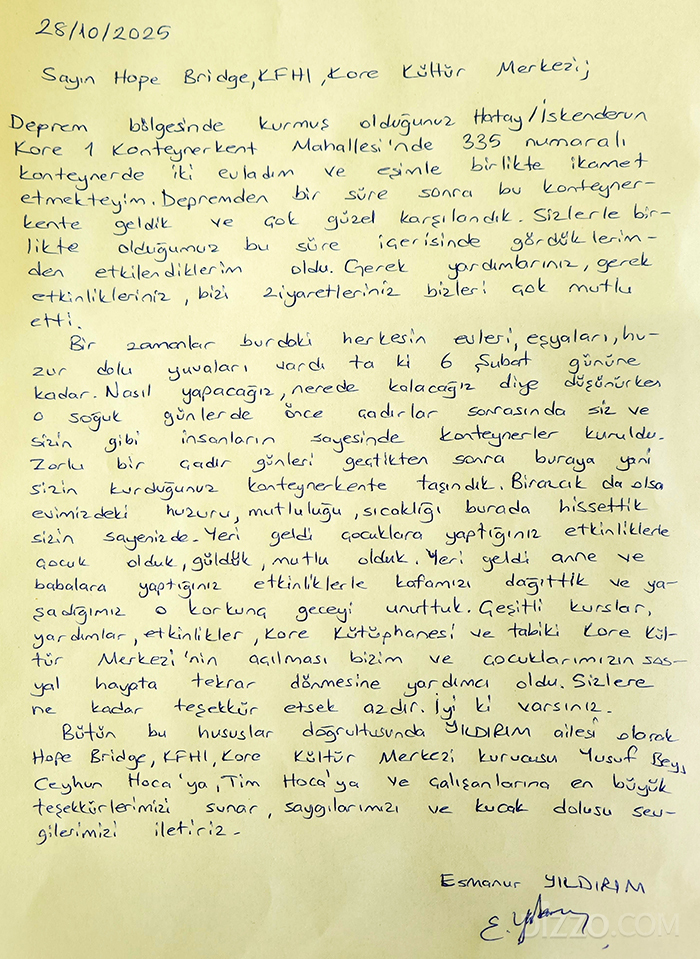 28/10/2025
Sayın Hope Bridge, KFHI, Kore Kültür Merkezi;
Deprem bölgesinde kurmuş olduğunuz Hatay/İskenderun
Kore 1 Konteynerkent Mahallesi'nde 335 numaralı
konteynerde iki evladım ve eşimle birlikte ikamet
etmekteyim. Depremden bir süre sonra bu konteyner-
kente geldik ve çok güzel karşılandık. Sizlerle bir-
likte olduğumuz bu süre içerisinde gördüklerim-
den etkilendiklerim oldu. Gerek yardımlarınız, gerek
etkinlikleriniz, bizi ziyaretleriniz bizleri çok mutlu
etti.
Bir zamanlar burdaki herkesin evleri, eşyaları, hu-
zur dolu yuvaları vardı ta ki 6 Şubat gününe
kadar. Nasıl yapacağız, nerede kalacağız diye düşünürken
o soğuk günlerde önce çadırlar sonrasında siz ve
sizin gibi insanların sayesinde konteynerler kuruldu.
Zorlu bir çadır günleri geçtikten sonra buraya yani
sizin kurduğunuz konteynerkente taşındık. Birazcık da olsa
evimizdeki huzuru, mutluluğu, sıcaklığı burada hissettik
sizin sayenizde. Yeri geldi çocuklara yaptığınız etkinliklerle
çocuk olduk, güldük, mutlu olduk. Yeri geldi anne ve
babalara yaptığınız etkinliklerle kafamızı dağıttık ve ya-
şadığımız o korkunç geceyi unuttuk. Çeşitli kurslar,
yardımlar, etkinlikler, Kore Kütüphanesi ve tabiki Kore Kül-
tür Merkezi'nin açılması bizim ve çocuklarımızın sos-
yal hayata tekrar dönmesine yardımcı oldu. Sizlere
ne kadar teşekkür etsek azdır. İyi ki varsınız.
Bütün bu hususlar doğrultusunda YILDIRIM ailesi olarak
Hope Bridge, KFHI, Kore Kültür Merkezi kurucusu Yusuf Bey,
Ceyhun Hoca'ya, Tim Hoca'ya ve çalışanlarına en büyük
teşekkürlerimizi sunar, saygılarımızı ve kucak dolusu sev-
gilerimizi iletiriz.
Esmanur YILDIRIM